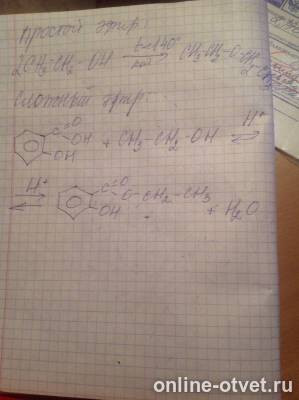 Простой эфир:
2CH₃-CH₂-OH t<140° CH₃-CH₂-O-CH₂-CH₃
Сложный эфир:
C=O OH OH + CH₃-CH₂-OH H⁺ ⇌
H⁺ ⇌ C=O O-CH₂-CH₃ OH + H₂O
online-otvet.ru